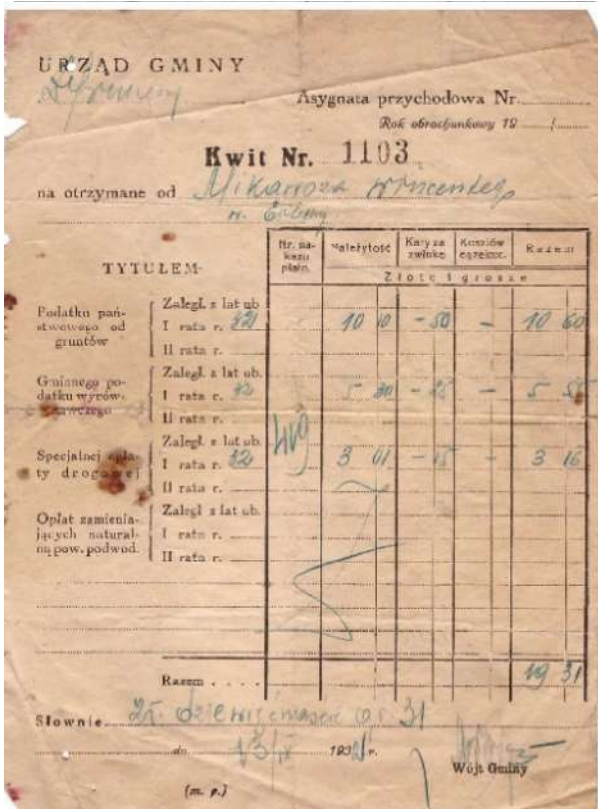 URZĄD GMINY
Asygnata przychodowa Nr.
Rok obrachunkowy 19 /
Kwit Nr. 1103
na otrzymane od
TYTUŁEM
Nr. nakazu płatn. Należytość Kary za zwłokę Kosztów egzekuc. Razem
Złote i grosze
Podatku państwowego od gruntów
Zaległ. z lat ub.
I rata r. 32 10 10 - 50 - 10 60
II rata r.
Gminnego podatku wyrównawczego
Zaległ. z lat ub.
I rata r. 32 5 - - 5
II rata r.
Specjalnej opłaty drogowej
Zaległ. z lat ub.
I rata r. 32 3 01 - 15 - 3 16
II rata r.
Opłat zamieniających natural-ną pow. podwod.
Zaległ. z lat ub.
I rata r.
II rata r.
Razem . . . . 19 31
Słownie zł. dziewiętnaście gr. 31
dn. 193 r.
Wójt Gminy
(m. p.)